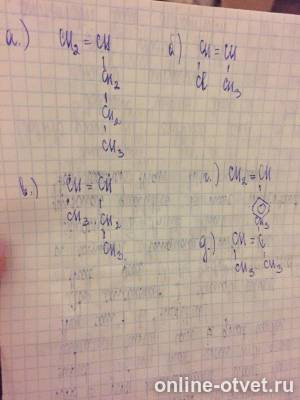 а.) CH₂ = CH
CH₂
CH₂
CH₃
б) CH = CH
Cl CH₃
в.) CH = CH
CH₃ CH₂
CH₃
г.) CH₂ = CH
д.) CH = C
CH₃
CH₃ CH₃
online-otvet.ru